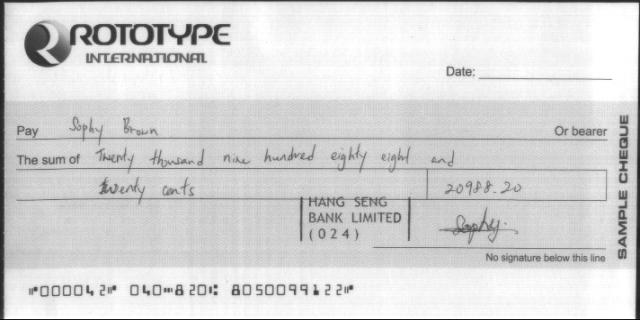 ROTOTYPE
INTERNATIONAL
Date:
Pay Sophy Brown Or bearer
The sum of Twenty thousand nine hundred eighty eight and
twenty cents 20988.20
HANG SENG
BANK LIMITED
(024)
Sophy.
No signature below this line
SAMPLE CHEQUE
⑈000042⑈ 040⑉820⑆ 8050099122⑈